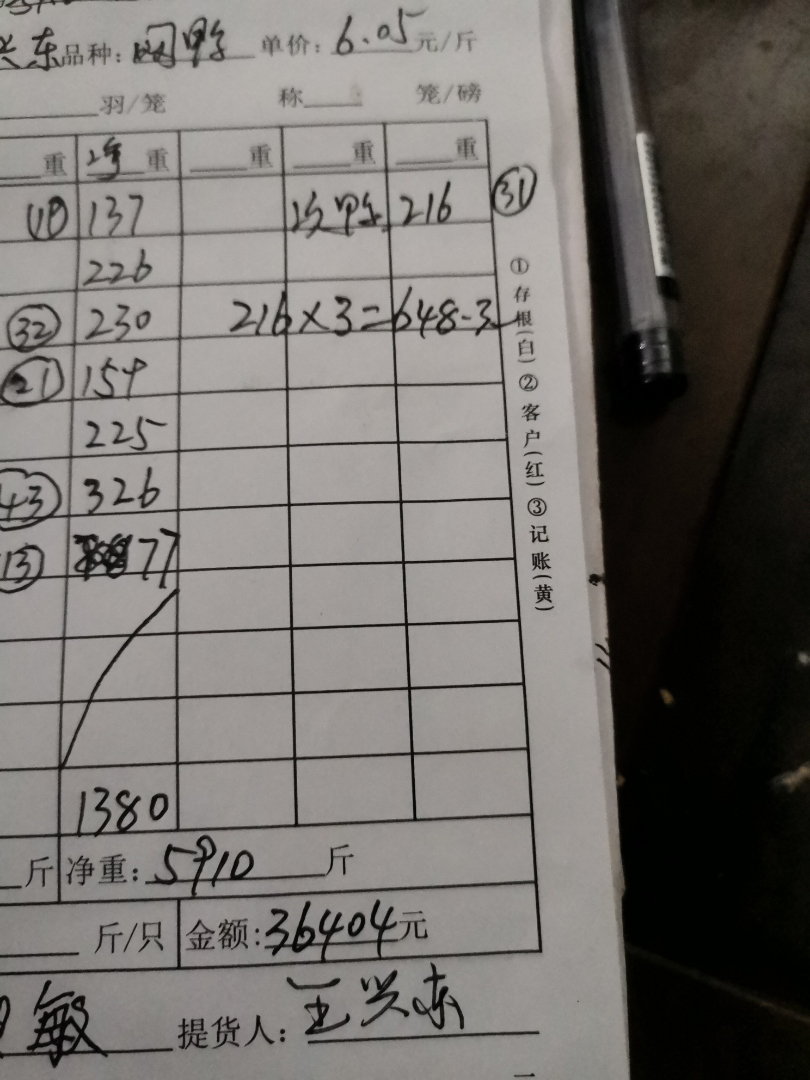 兴东品种: 单价: 6.05元/斤
羽/笼 称 笼/磅
重 净重 重 重 重
137 次鸭 216 ㉛
226
㉜ 230 216×3=648-3
㉑ 154
225
㊸ 326
⑬ 77
1380
斤 净重: 5910 斤
斤/只 金额: 36404元
敏 提货人: 王兴东
①存根(白)②客户(红)③记账(黄)